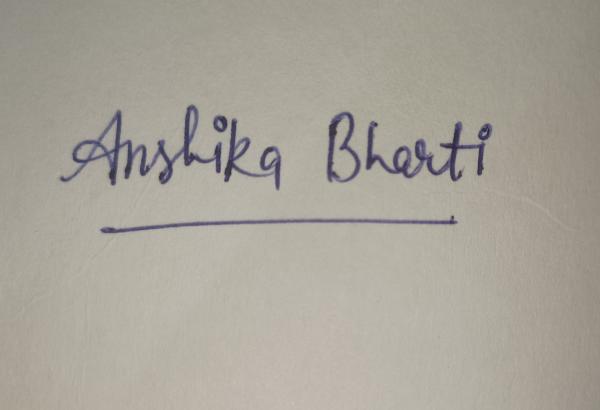 Anshika Bharti